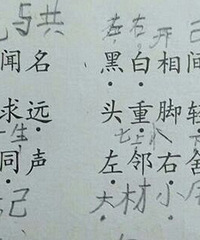 与共 左右开己
闻名 黑白相间
求远 头重脚轻
一生 七上八
同声 左邻右舍
己 大材小